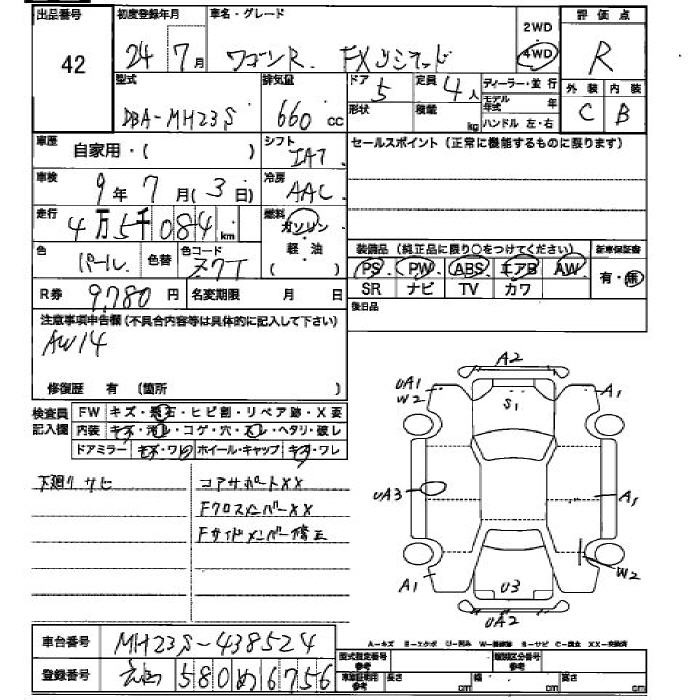 出品番号 初度登録年月 車名・グレード 2WD 評価点
42 24 7月 ワゴンR FXリミテッド 4WD R
型式 排気量 ドア 定員 ディーラー・並行 外装 内装
DBA-MH23S 660 cc 5 4人 モデル年式 年 C B
形状 積載 kg ハンドル 左・右
車歴 自家用・( ) シフト IAT セールスポイント (正常に機能するものに限ります)
車検 9年 7月 (3日) 冷房 AAC
走行 4万5千084km 燃料 ガソリン
軽油
( )
色 パール 色替 色コード Z7T 装備品 (純正品に限り○をつけてください) 新車保証書
PS PW ABS エアB AW 有・無
R券 9,780円 名変期限 月 日 SR ナビ TV カワ
注意事項申告欄 (不具合内容等は具体的に記入して下さい) 後日品
AW14
修復歴 有 (箇所 )
検査員記入欄 FW キズ・飛石・ヒビ割・リペア跡・X要
内装 キズ・汚レ・コゲ・穴・スレ・ヘタリ・破レ
ドアミラー キズ・ワレ ホイール・キャップ キズ・ワレ
下廻りサビ コアサポートXX
FクロスメンバーXX
Fサイドメンバー修正
A2
UA1 A1
W2
S1
UA3 A1
W2
A1 U3
UA2
車台番号 MH23S-438524
登録番号 580 め 6756
A-キズ E-エクボ U-凹み W-補修跡 S-サビ C-腐食 XX-交換済
型式指定番号 参考 類別区分番号 参考
車庫証明用 参考 長さ cm 幅 cm 高さ cm